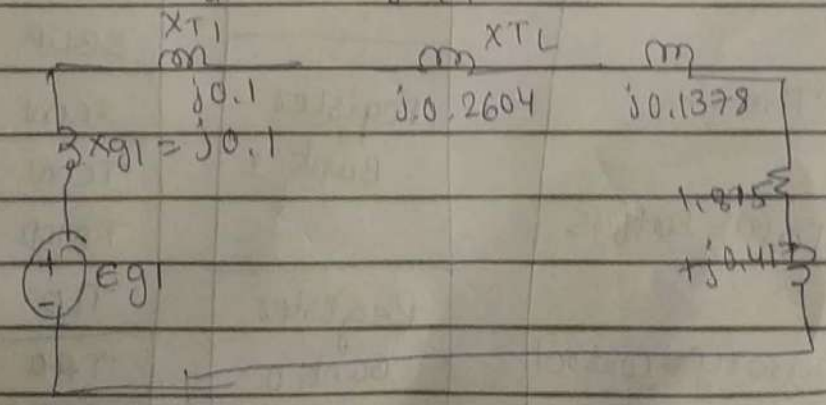 XT1 XTL
j0.1 j.0.2604 j0.1378
Xg1 = j0.1
1.875
+j0.417
+ Eg1
-